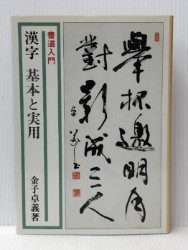 書道入門
漢字 基本と実用
金子卓義著
舉杯邀明月
對影成三人